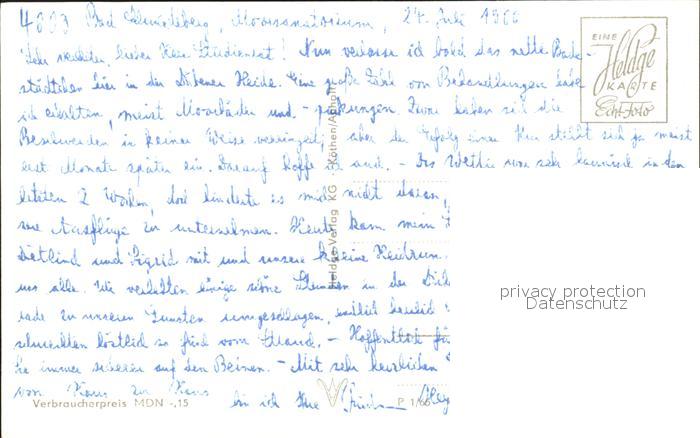 4803 Bad Schmiedeberg, Moorsanatorium, 24. Juli 1966
Sehr verehrter, lieber Herr Studienrat! Nun verlasse ich bald das nette Bade-
städtchen hier in der Dübener Heide. Eine große Zahl von Behandlungen habe
ich erhalten, meist Moorbäder und -packungen. Zwar haben sich die
Beschwerden in keiner Weise verringert, aber der Erfolg einer Kur stellt sich ja meist
erst Monate später ein. Darauf hoffe ich auch. - Das Wetter war sehr launisch in den
letzten 2 Wochen, doch hinderte es mich nicht daran,
Ausflüge zu unternehmen. Heute kam mein
Dietlind und Sigrid mit und unsere kleine Heidrun.
uns alle. Wir verlebten einige schöne Stunden in der
zu unseren Gunsten umgeschlagen, endlich
schmeckten köstlich so frisch vom Strand. - Hoffentlich
Sie immer sicherer auf den Beinen. - Mit sehr herzlichen
von Haus zu Haus
bin ich Ihre
EINE
Heldge
KARTE
Echt-Foto
Heldge-Verlag KG Köthen/Anhalt
privacy protection
Datenschutz
Verbraucherpreis MDN -,15
P 1/66